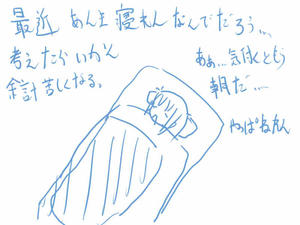 最近 あんま寝れん なんでだろう...
考えたらいかん
余計苦しくなる。
あぁ...気付くともう
朝だ...
やっぱねれん